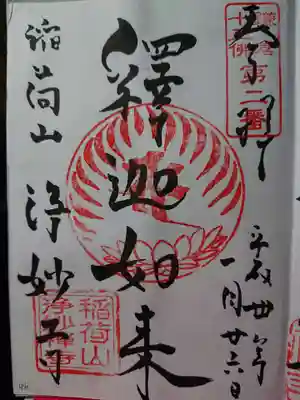 奉拝
鎌倉
十三佛
第二番
平成卅年
一月廿六日
釋迦如来
稲荷山 浄妙寺
稲荷山
浄妙禅寺